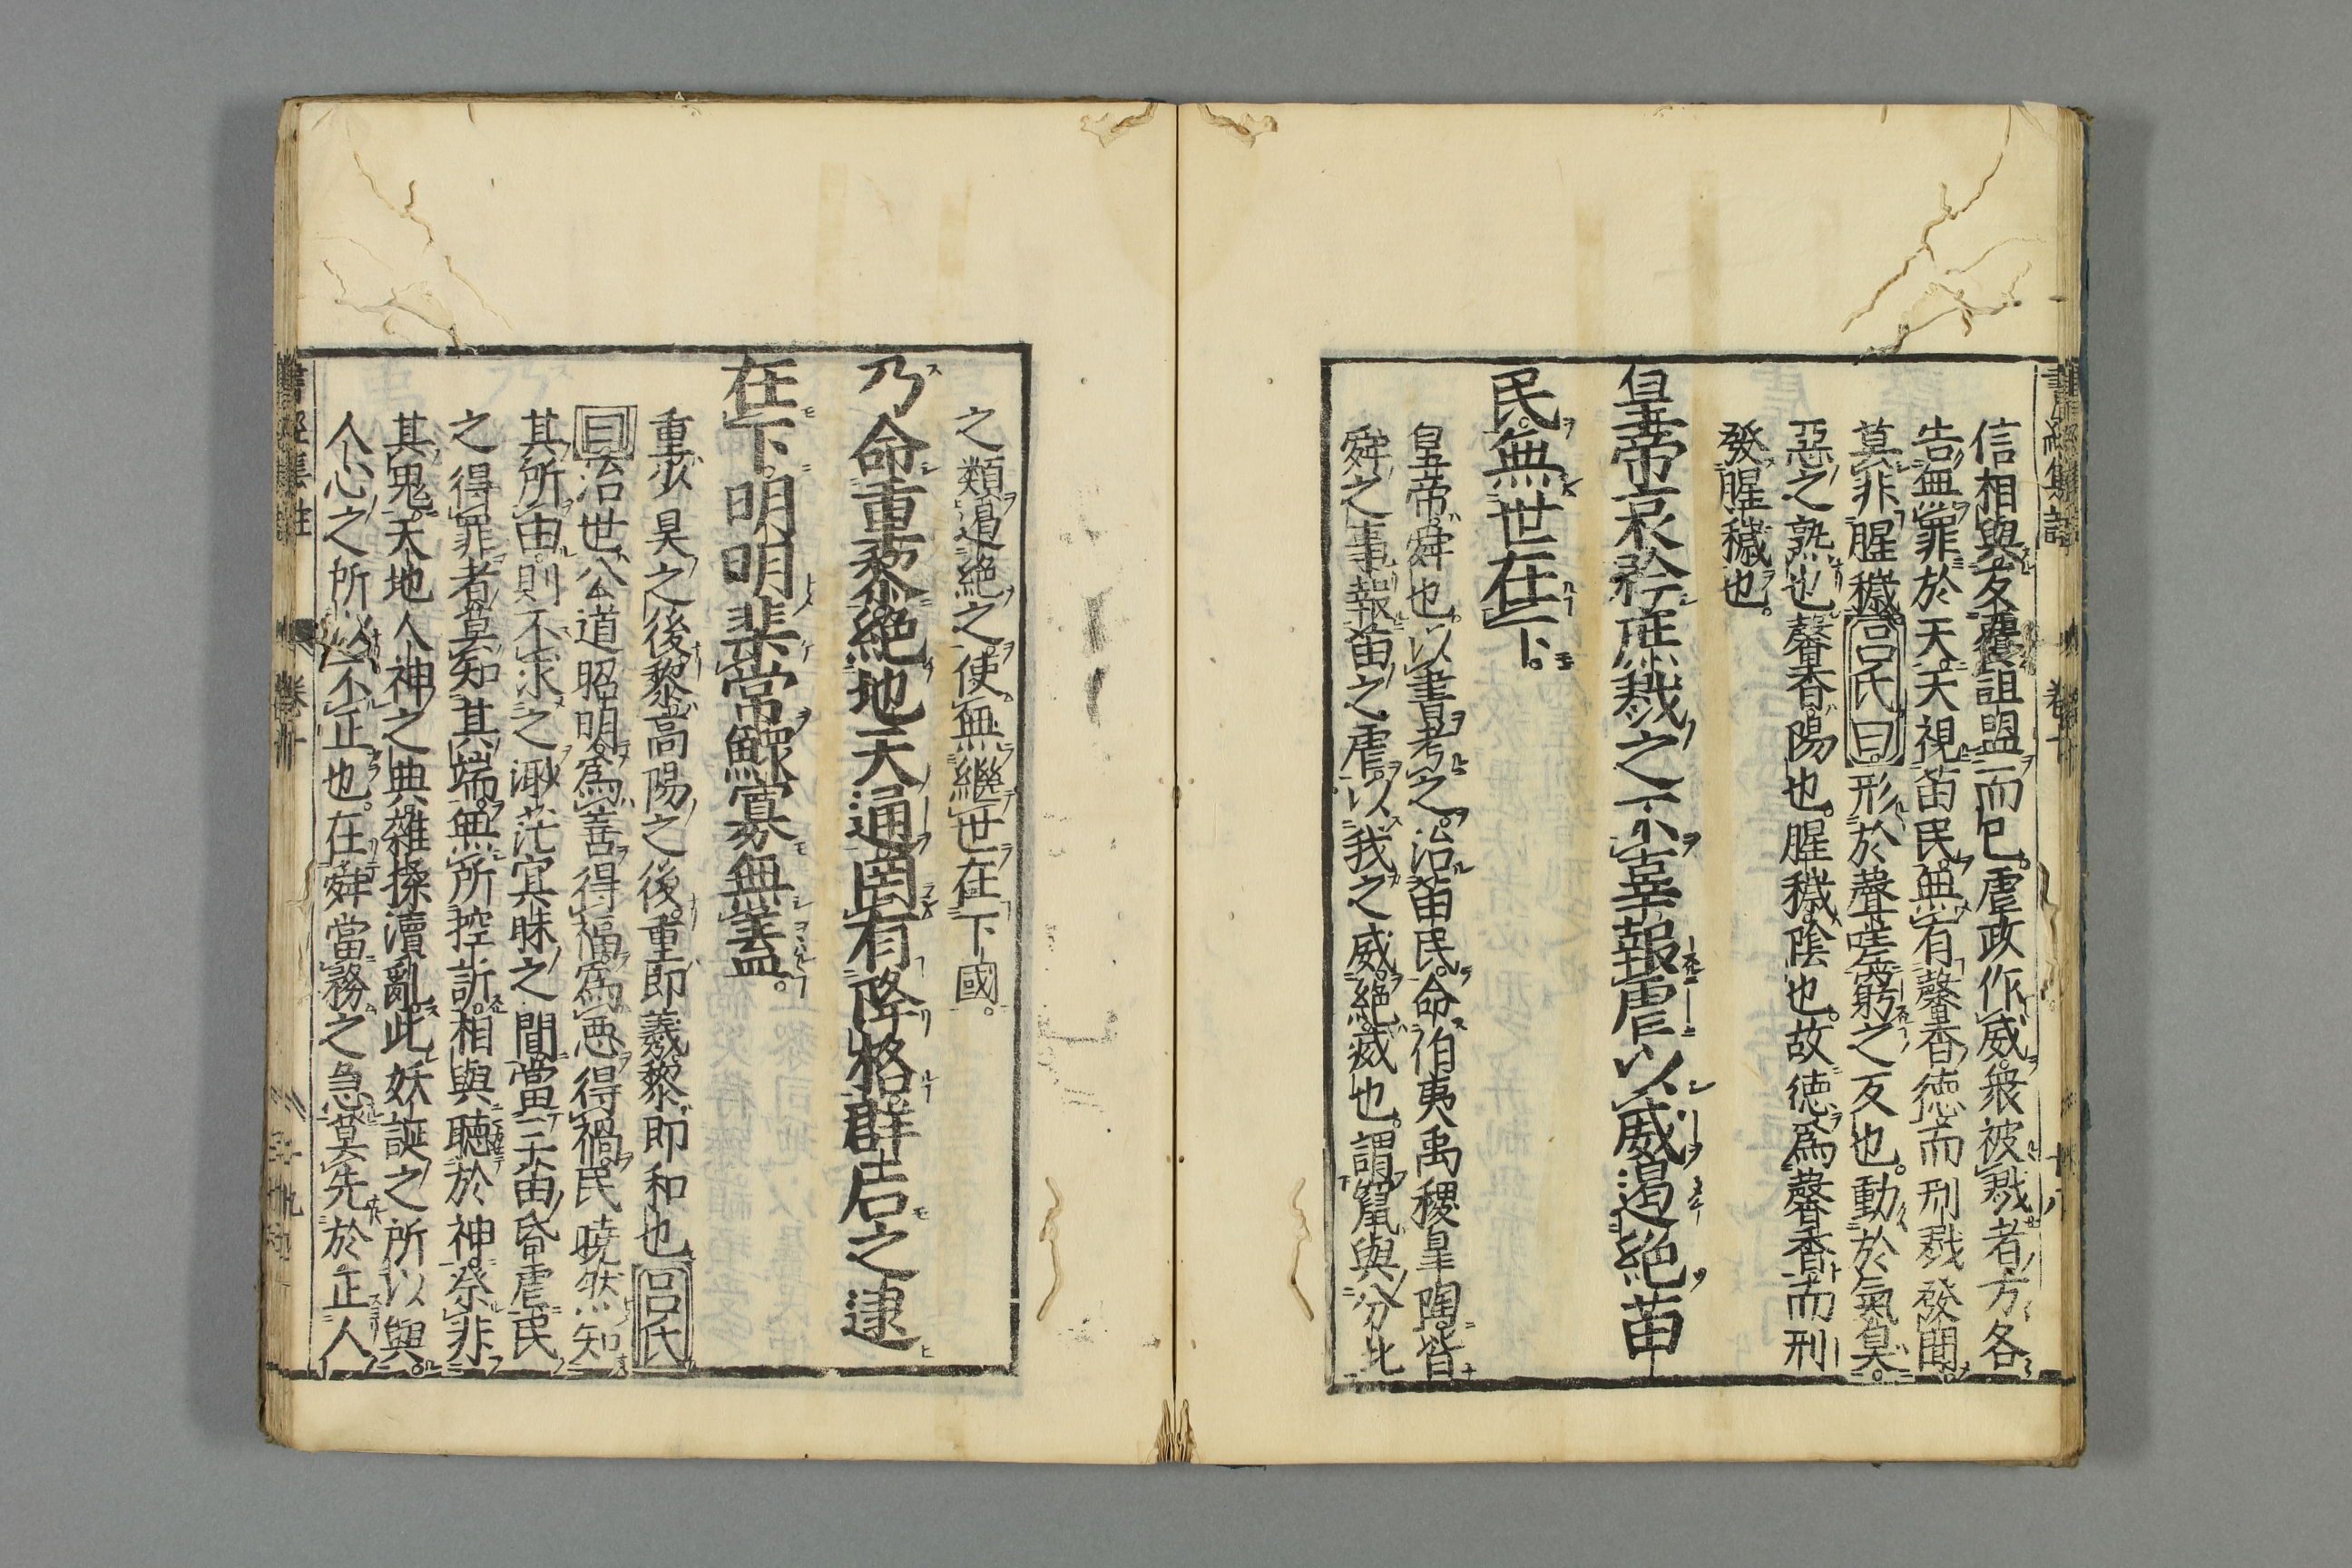 書經集註 卷十 十八
信相與反覆詛盟而已。虐政作威。衆被戮者方各
告無罪於天。天視苗民。無有馨香德而刑戮發聞。
莫非腥穢呂氏曰。形於聲嗟窮之反也。動於氣臭。
惡之熟也馨香。陽也。腥穢。陰也。故德爲馨香而刑
發腥穢也。
皇帝哀矜庶戮之不辜報虐以威遏絶苗
民。無世在下。
皇帝。舜也。以書考之。治苗民。命伯夷禹稷皐陶。皆
舜之事。報苗之虐。以我之威。絶。滅也。謂竄與分北
之類遏絶之。使無繼世在下國。
乃命重黎絶地天通罔有降格。群后之逮
在下。明明棐常鰥寡無蓋。
重。少昊之後黎。高陽之後。重即羲黎即和也呂氏
曰治世公道昭明。爲善得福。爲惡得禍。民曉然知
其所由。則不求之渺茫冥昧之間。當三苗昏虐。民
之得罪者。莫知其端。無所控訴。相與聽於神。祭非
其鬼。天地人神之典。雜揉瀆亂。此妖誕之所以與。
人心之所以不正也。在舜當務之急。莫先於正人
書經集註 卷十 十九